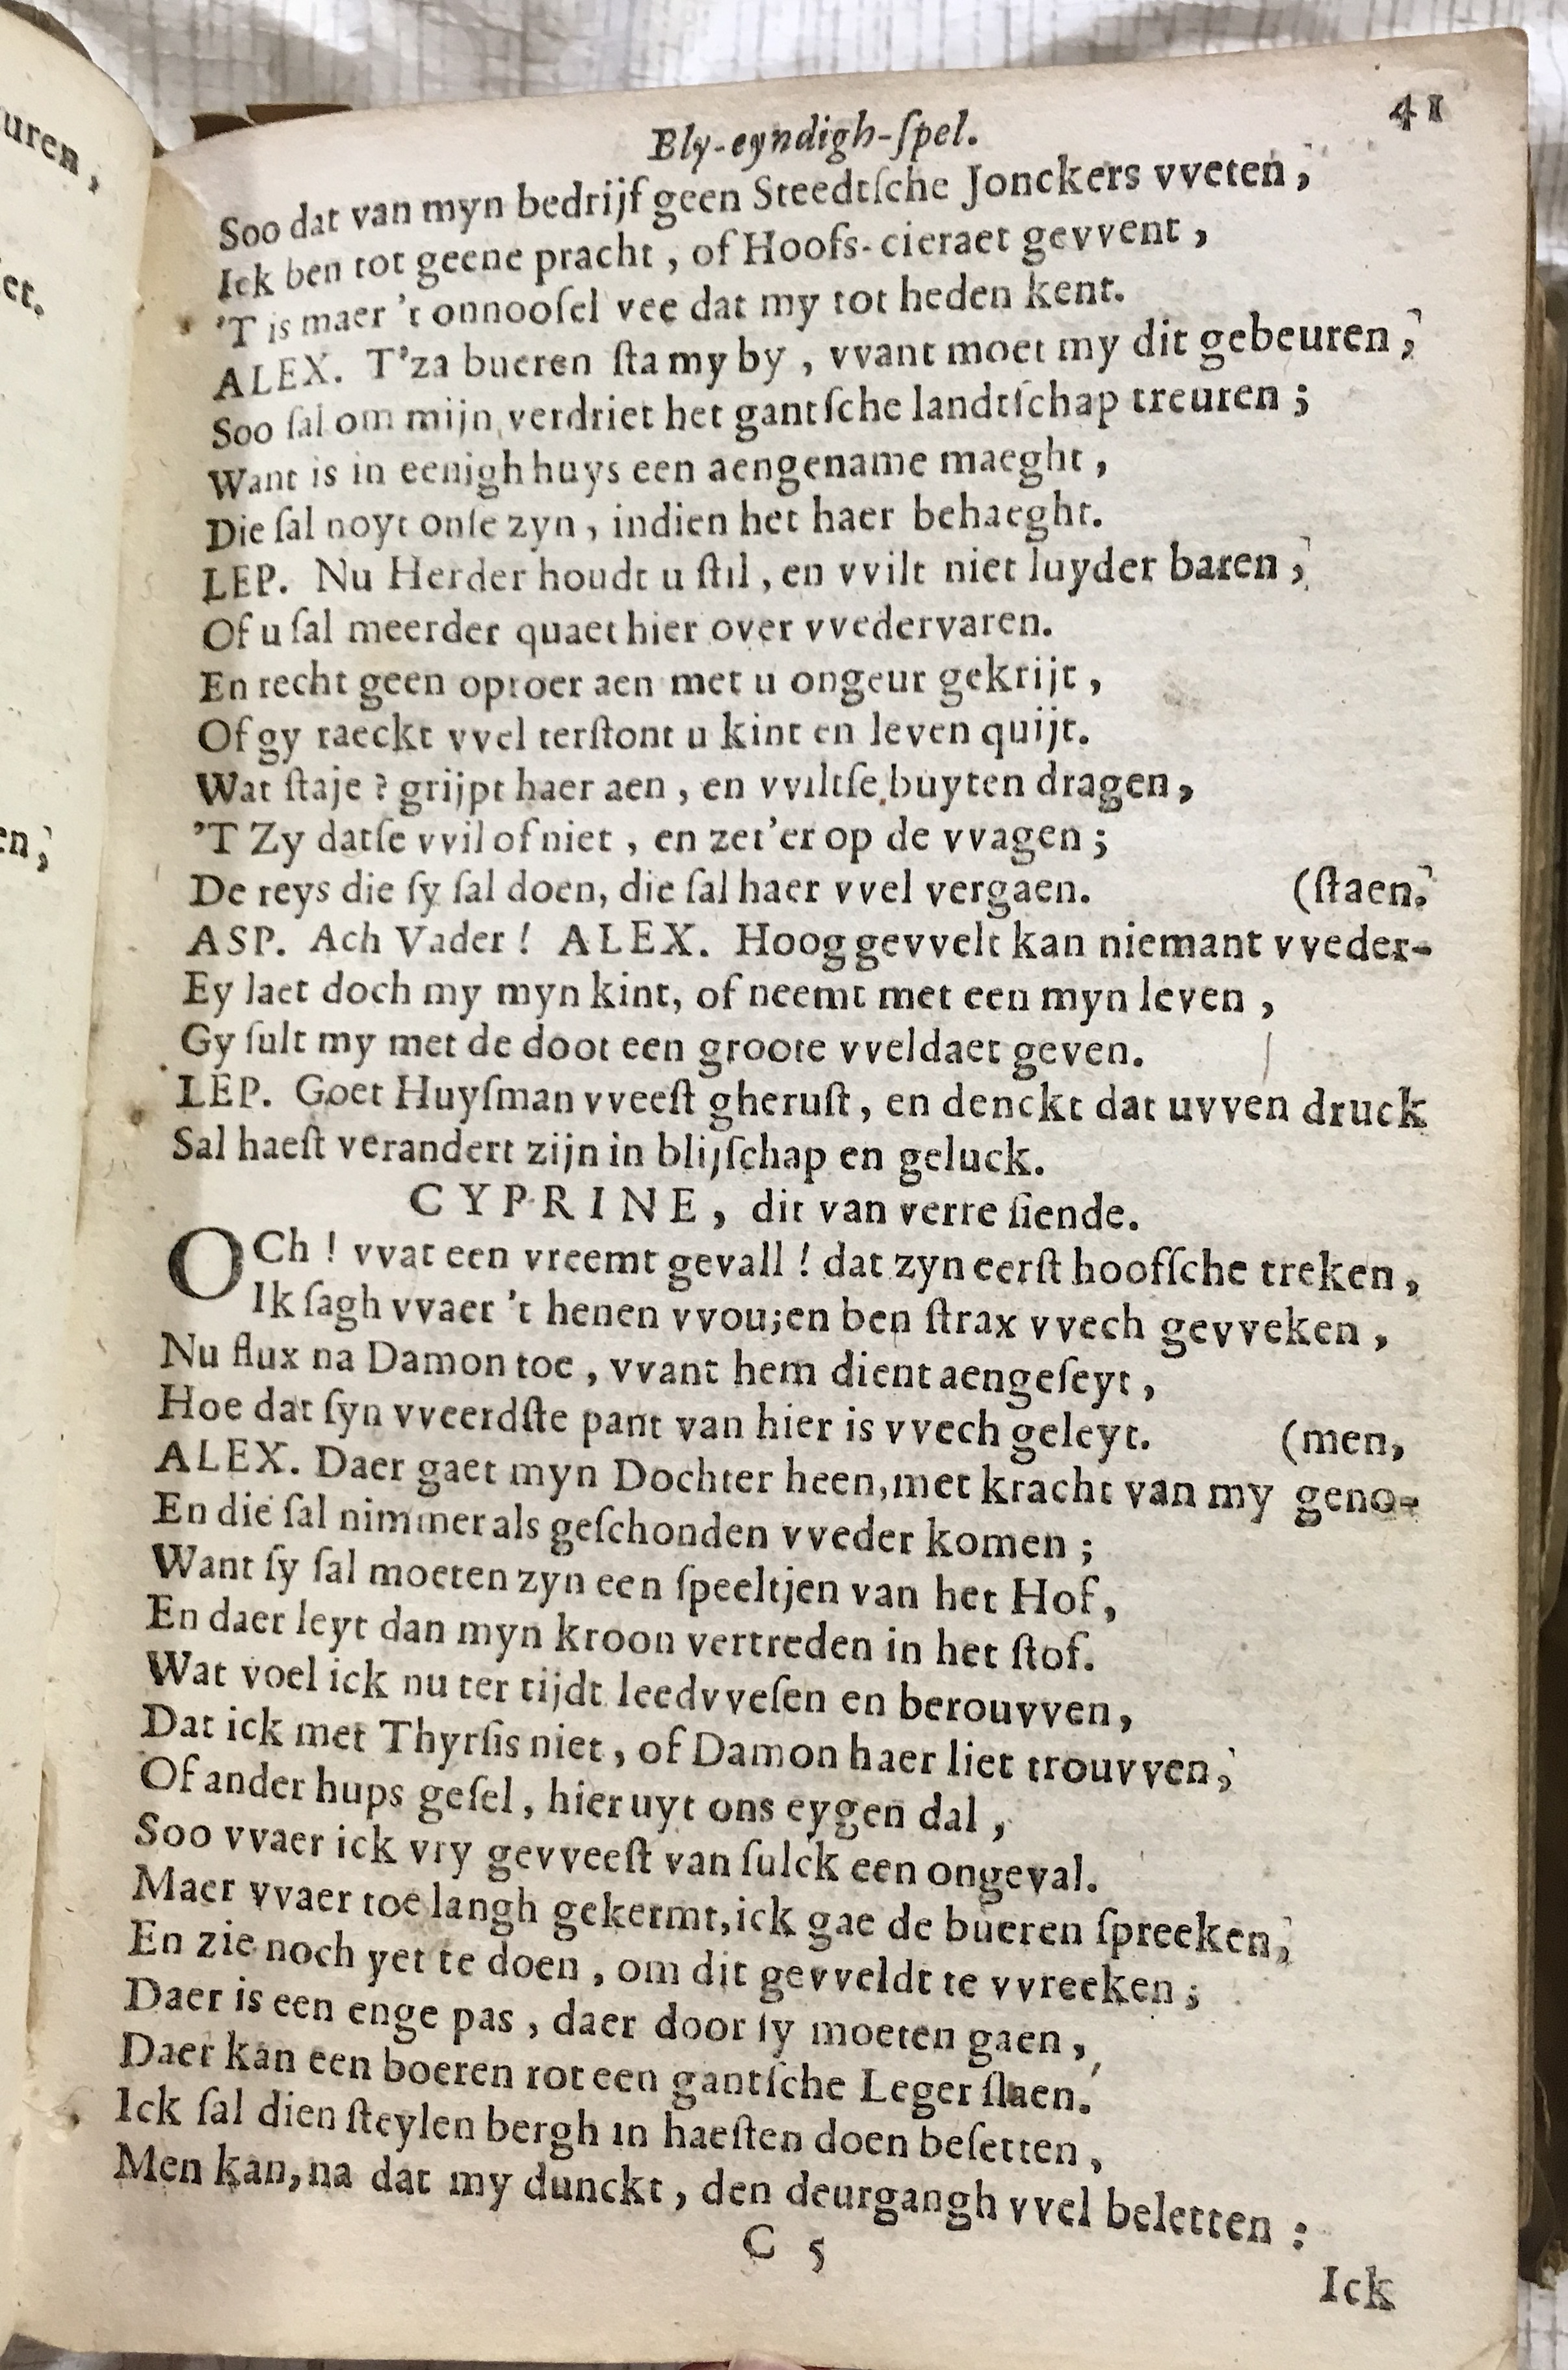 uren,
et.
en,
Bly-eyndigh-ſpel. 41
Soo dat van myn bedrijf geen Steedtſche Jonckers vveten,
Ick ben tot geene pracht, of Hoofs-cieraet gevvent,
'T is maer 't onnooſel vee dat my tot heden kent.
ALEX. T'za bueren ſta my by, vvant moet my dit gebeuren,
Soo ſal om mijn verdriet het gantſche landtſchap treuren;
Want is in eenigh huys een aengename maeght,
Die ſal noyt onſe zyn, indien het haer behaeght.
LEP. Nu Herder houdt u ſtil, en vvilt niet luyder baren,
Of u ſal meerder quaet hier over vvedervaren.
En recht geen oproer aen met u ongeur gekrijt,
Of gy raeckt vvel terſtont u kint en leven quijt.
Wat ſtaje? grijpt haer aen, en vviltſe buyten dragen,
'T Zy datſe vvil of niet, en zet'er op de vvagen;
De reys die ſy ſal doen, die ſal haer vvel vergaen. (ſtaen.
ASP. Ach Vader! ALEX. Hoog gevvelt kan niemant vveder-
Ey laet doch my myn kint, of neemt met een myn leven,
Gy ſult my met de doot een groote vveldaet geven.
LEP. Goet Huyſman vveeſt gheruſt, en denckt dat uvven druck
Sal haeſt verandert zijn in blijſchap en geluck.
CYPRINE, dit van verre ſiende.
OCh! vvat een vreemt gevall! dat zyn eerſt hoofſche treken,
Ik ſagh vvaer 't henen vvou; en ben ſtrax vvech gevveken,
Nu flux na Damon toe, vvant hem dient aengeſeyt,
Hoe dat ſyn vveerdſte pant van hier is vvech geleyt. (men,
ALEX. Daer gaet myn Dochter heen, met kracht van my geno-
En die ſal nimmer als geſchonden vveder komen;
Want ſy ſal moeten zyn een ſpeeltjen van het Hof,
En daer leyt dan myn kroon vertreden in het ſtof.
Wat voel ick nu ter tijdt leedvveſen en berouvven,
Dat ick met Thyrſis niet, of Damon haer liet trouvven,
Of ander hups geſel, hier uyt ons eygen dal,
Soo vvaer ick vry gevveeſt van ſulck een ongeval.
Maer vvaer toe langh gekermt, ick gae de bueren ſpreeken,
En zie noch yet te doen, om dit gevveldt te vvreeken;
Daer is een enge pas, daer door ſy moeten gaen,
Daer kan een boeren rot een gantſche Leger ſlaen.
Ick ſal dien ſteylen bergh in haeſten doen beſetten,
Men kan, na dat my dunckt, den deurgangh vvel beletten:
C 5
Ick